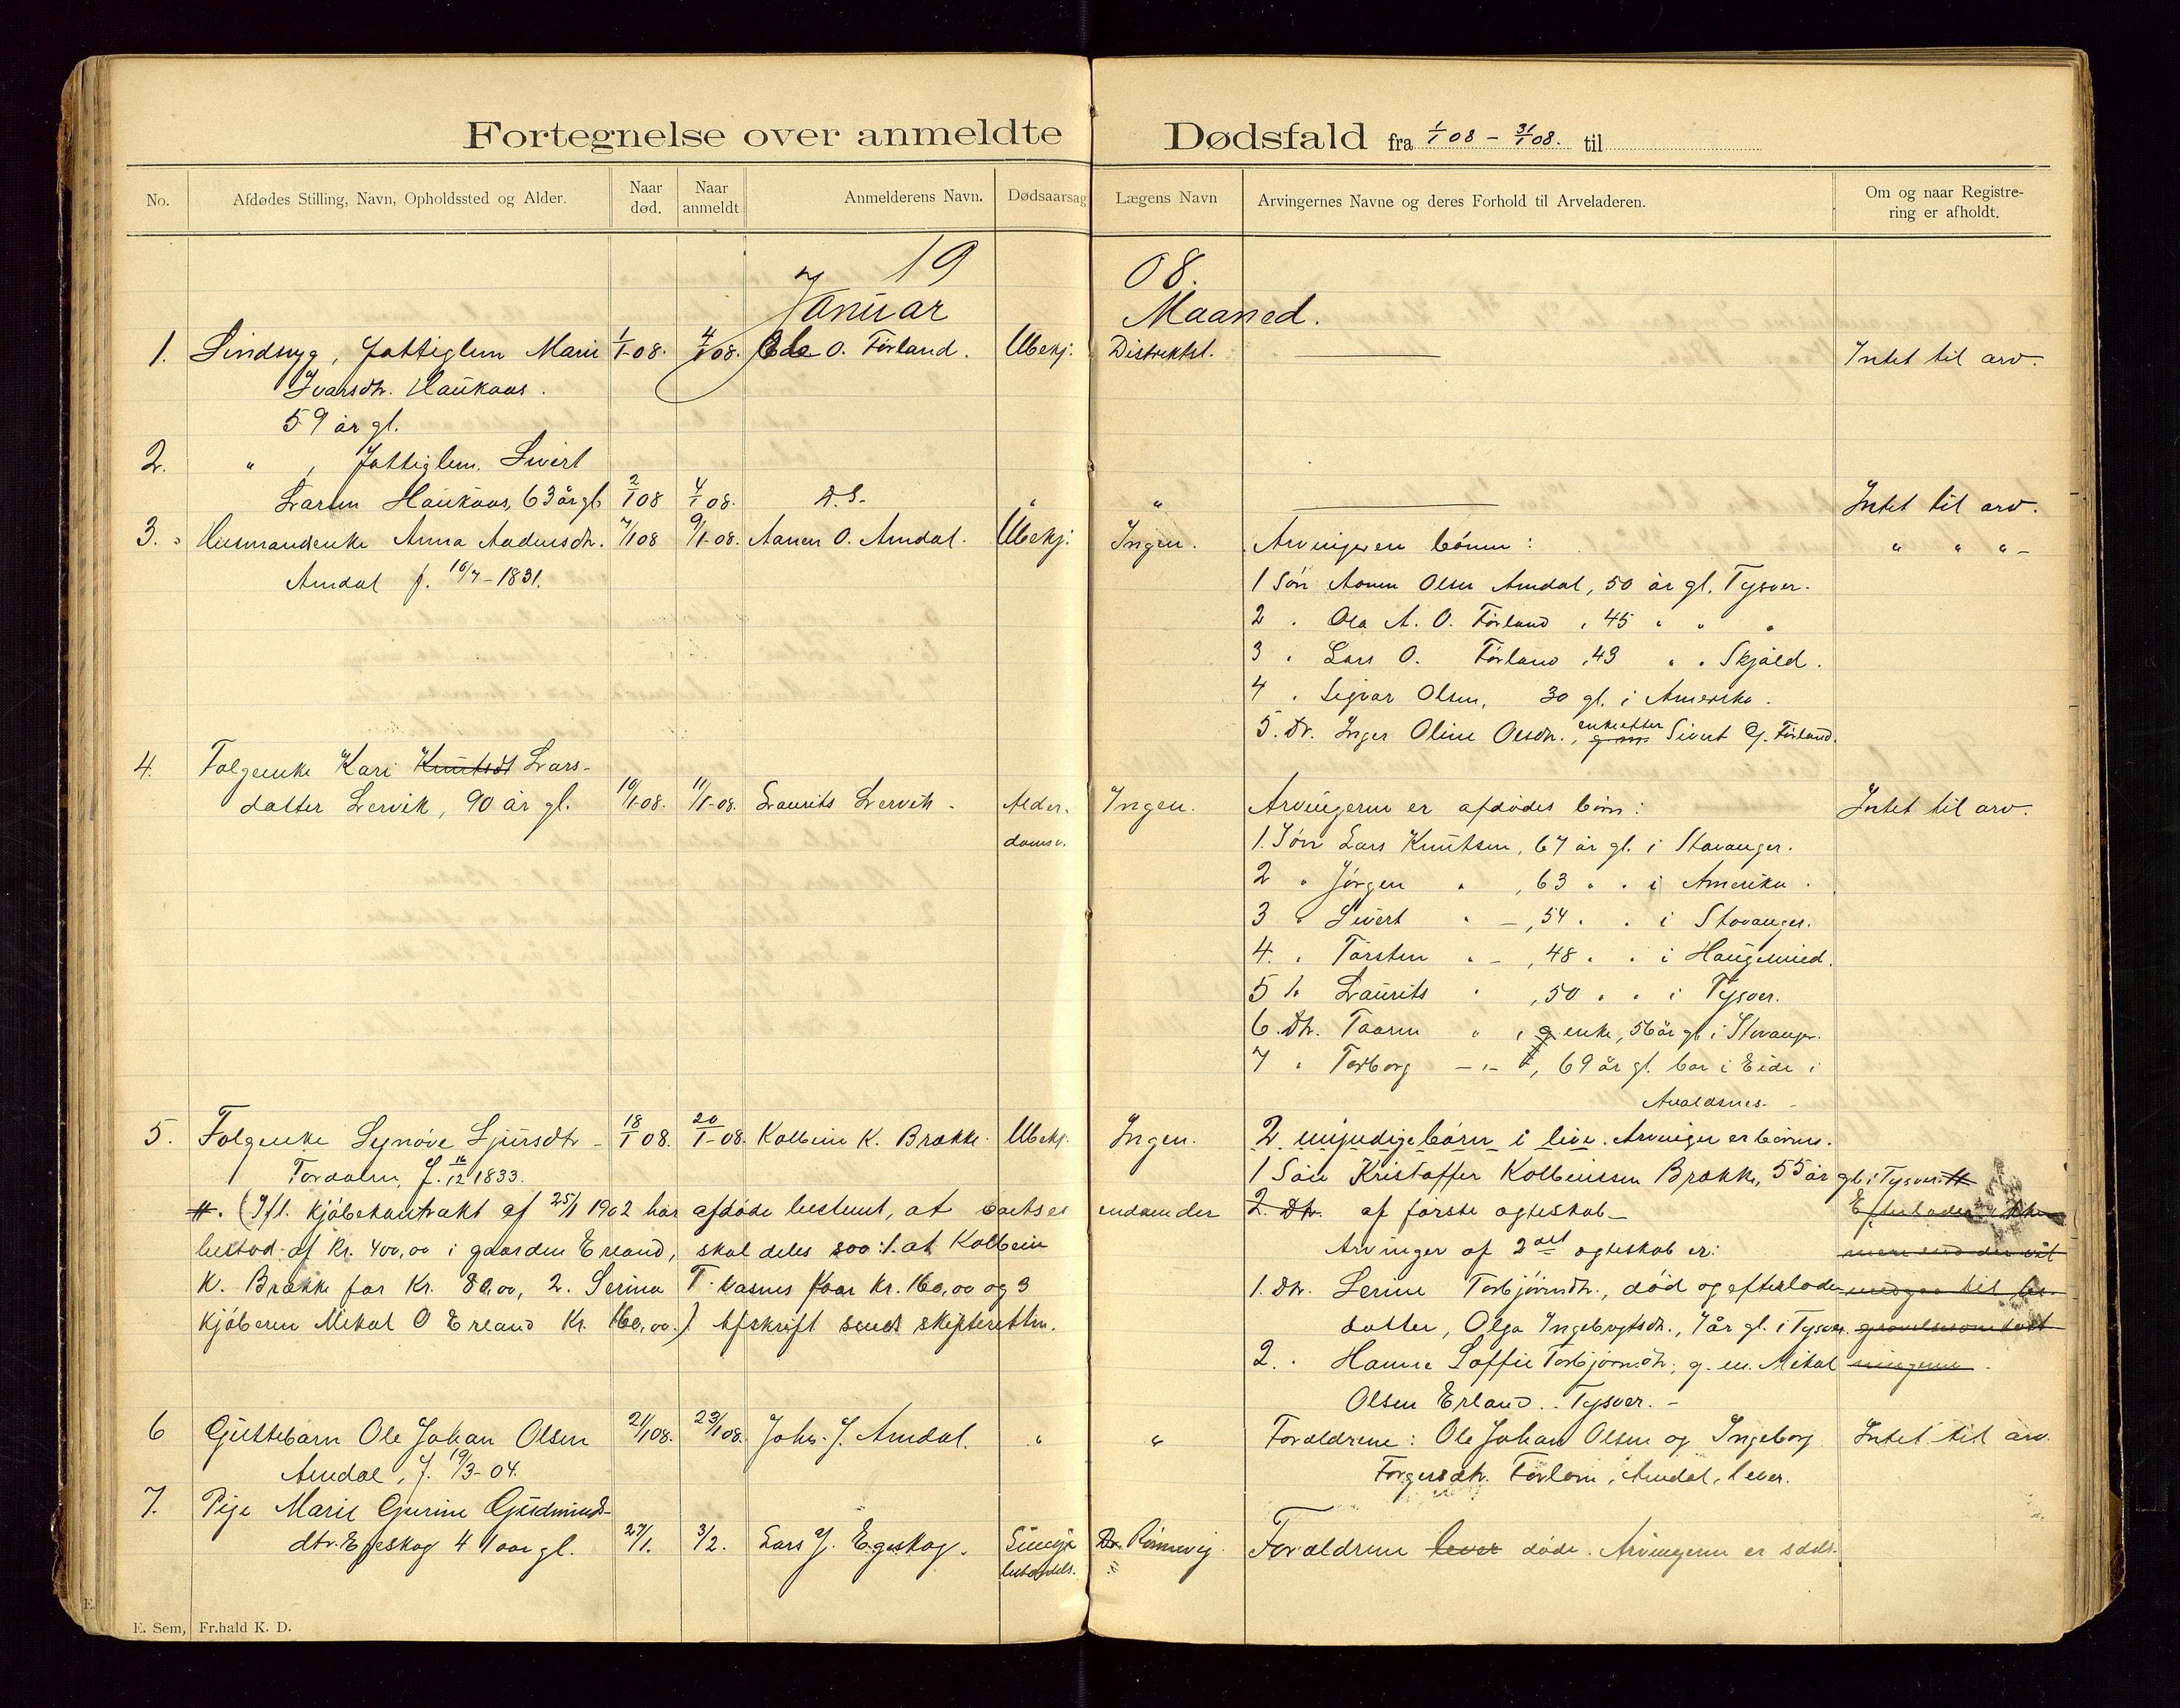 Fortegnelse over anmeldte Dødsfald fra 1/1 08 - 31/1 08. til
No. Afdødes Stilling, Navn, Opholdssted og Alder. Naar død. Naar anmeldt. Anmelderens Navn. Dødsaarsag Lægens Navn Arvingernes Navne og deres Forhold til Arveladeren. Om og naar Registrering er afholdt.
1908.
Januar Maaned.
1. Sindsyg, fattiglem Marie 1/1-08. 4/1 08. Ole O. Førland. Ubekj. Distriktsl. Intet til arv.
Ivarsdtr. Haukaas.
59 år gl.
2. " , fattiglem. Sivert
Larsen Haukaas, 63 år gl. 2/1 08 4/1 08. D.S. " " Intet til arv.
3. Husmandsenke Anna Andersdtr. 7/1 08 9/1-08. Aanen O. Amdal. Ubekj. Ingen. Arvinger er børnene: " " " -
Amdal f. 10/7-1831. 1 Søn Aanen Olsen Amdal, 50 år gl. Tysvær.
2 " Ola A. O. Førland, 45 " " "
3 " Lars O. Førland, 43 " " Skjold.
4 " Sigvar Olsen, 30 gl. i Amerika.
5. Dr. Inger Oline Olsdtr., enke efter g.m. Sivert G. Førland.
4. Folgeenke Kari Knutsdt Lars-
datter Lervik, 90 år gl. 10/1-08. 11/1-08. Laurits Lervik. Alder- Ingen. Arvingerne er afdødes børn: Intet til arv.
doms. 1. Søn Lars Knutsen, 67 år gl. i Stavanger.
2 " Jørgen " , 63 " " i Amerika.
3 " Sivert " - , 54 " " i Stavanger.
4. " Torsten " - , 48 " " i Haugesund.
5 " Laurits " , 50 " " i Tysvær.
6. Dtr. Taaren " , g enke, 56 år gl. i Stavanger.
7 " Torborg - " - , 69 år gl. bor i Eide i
Avaldsnes.
5. Folgeenke Synøve Sjursdtr 18/1 08. 20/1-08. Kolbein K. Brække. Ubekj. Ingen. 2 umyndige børn i live. Arvinger er børnene.
Fordalen, f. 16/12 1833. 1 Søn Kristoffer Kolbeinssen Brække, 55 år gl. i Tysvær. #
#. (Ifl. kjøbekontrakt af 25/1 1902 har afdøde bestemt, at 2. Dtr. af første ægteskab - Efterlader ikke
bestod af Kr. 400,00 i gaarden Erland, skal deles saa: 1. at Kolbein Arvinger af 2det ægteskab er: mere end der vil
K. Brække får Kr. 80,00, 2. Serina T. faar Kr. 160,00 og 3 1. Dtr. Serine Torbjørnsdtr., død og efterlader medgaa til be-
kjøberen Mikal O Erland Kr. 160,00.) Afskrift sendt skifteretten. datter, Olga Ingebrigtsdtr., 7 år gl. i Tysvær.
2. " Hanna Soffie Torbjørnsdtr. g. m. Mikal
Olsen Erland. Tysvær. -
6 Guttebarn Ole Johan Olsen 21/1 08. 23/1 08. Johs. J. Amdal. " " Forældrene: Ole Johan Olsen og Ingeborg Intet til arv.
Amdal, f. 9/3-04. Torgersdtr. Førland, Amdal, lever.
7. Pige Marie Gurine Gudmunds-
dtr. Egeskog 4 1 aar gl. 27/1. 3/2. Lars G. Egeskog. Dr. Rønnevig Forældrene lever døde. Arvingerne er
E. Sem, Fr.hald K. D.